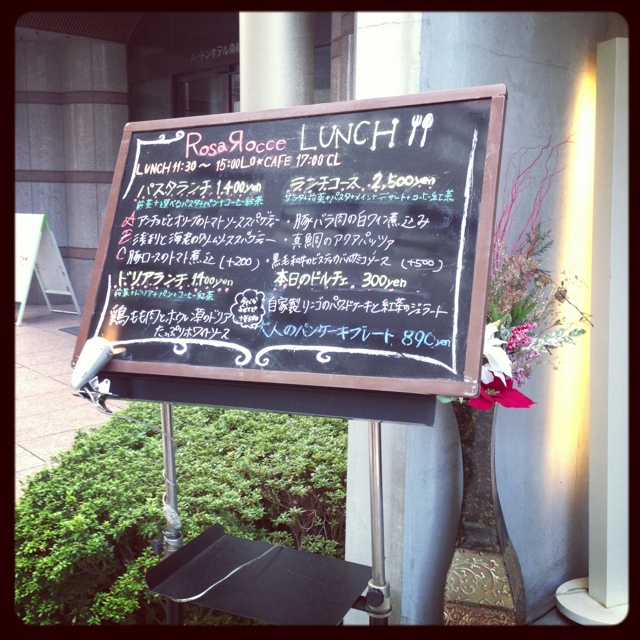 RosaRocce LUNCH
LUNCH 11:30～15:00L.O★CAFE 17:00CL
パスタランチ 1,400yen
前菜+選べるパスタ+パン+コーヒーor紅茶
A アンチョビとオリーブのトマトソーススパゲティー
B 浅利と海老のクリームソーススパゲティー
C 豚ロースのトマト煮込 (+200)
ドリアランチ 1,400yen
前菜+ドリア+パン+コーヒーor紅茶
鶏もも肉とホウレン草のドリア
たっぷりホワイトソース
ランチコース 2,500yen
サラダ+前菜+パスタ+メイン+デザート+コーヒーor紅茶
・豚バラ肉の白ワイン煮込み
・真鯛のアクアパッツァ
・黒毛和牛のビステッカバルサミコソース (+500)
本日のドルチェ 300yen
自家製リンゴのパウンドケーキと紅茶のジェラート
大人のパンケーキプレート 890yen